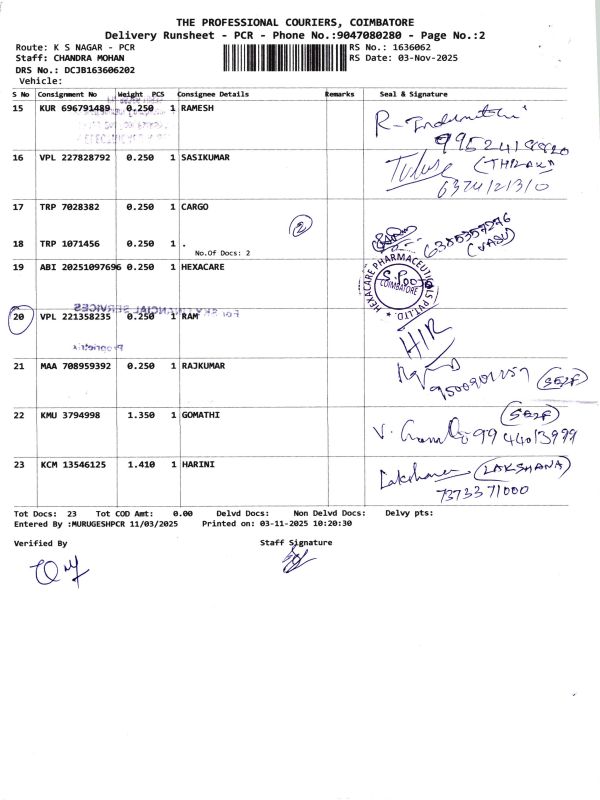 THE PROFESSIONAL COURIERS, COIMBATORE
Delivery Runsheet - PCR - Phone No.:9047080280 - Page No.:2
Route: K S NAGAR - PCR
RS No.: 1636062
Staff: CHANDRA MOHAN
RS Date: 03-Nov-2025
DRS No.: DCJB163606202
Vehicle:
S No Consignment No Weight PCS Consignee Details Remarks Seal & Signature
15 KUR 696791489 0.250 1 RAMESH
16 VPL 227828792 0.250 1 SASIKUMAR
(THILAK)
17 TRP 7028382 0.250 1 CARGO
2
18 TRP 1071456 0.250 1 .
No.Of Docs: 2
6385357276
(VASU)
19 ABI 20251097696 0.250 1 HEXACARE
HEXACARE PHARMACEUTICALS PVT.LTD.
COIMBATORE
20 VPL 221358235 0.250 1 RAM
For SKY FINANCIAL SERVICES
Proprietrix
H/R
21 MAA 708959392 0.250 1 RAJKUMAR
(SELF)
22 KMU 3794998 1.350 1 GOMATHI
(SELF)
9944013999
23 KCM 13546125 1.410 1 HARINI
Lakshana (LAKSHANA)
7373371000
Tot Docs: 23 Tot COD Amt: 0.00 Delvd Docs: Non Delvd Docs: Delvy pts:
Entered By :MURUGESHPCR 11/03/2025 Printed on: 03-11-2025 10:20:30
Verified By
Staff Signature